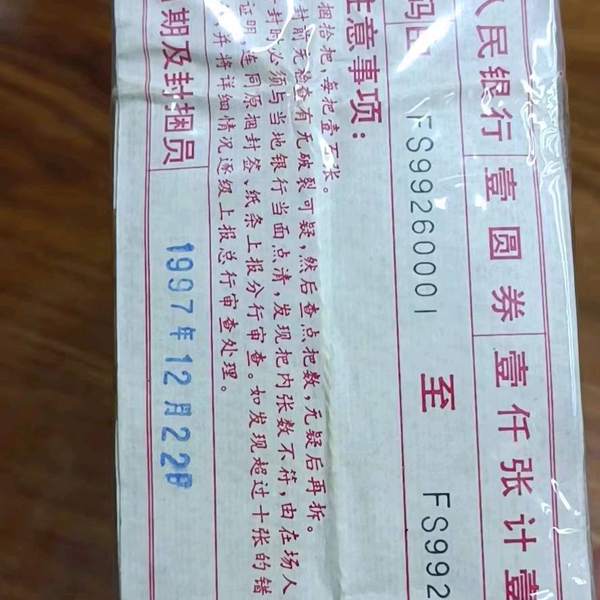 人民银行壹圆券壹仟张计壹
码由 FS99260001 至 FS992
注意事项：
捆拾把，每把壹百张。
封前先检查有无破裂可疑，然后查点把数，无疑后再拆。
封时必须与当地银行当面点清，发现把内张数不符，由在场人
证明，连同原捆封签、纸条上报分行审查。如发现超过十张的错
并将详细情况逐级上报总行审查处理。
日期及封捆员 1997年12月22日